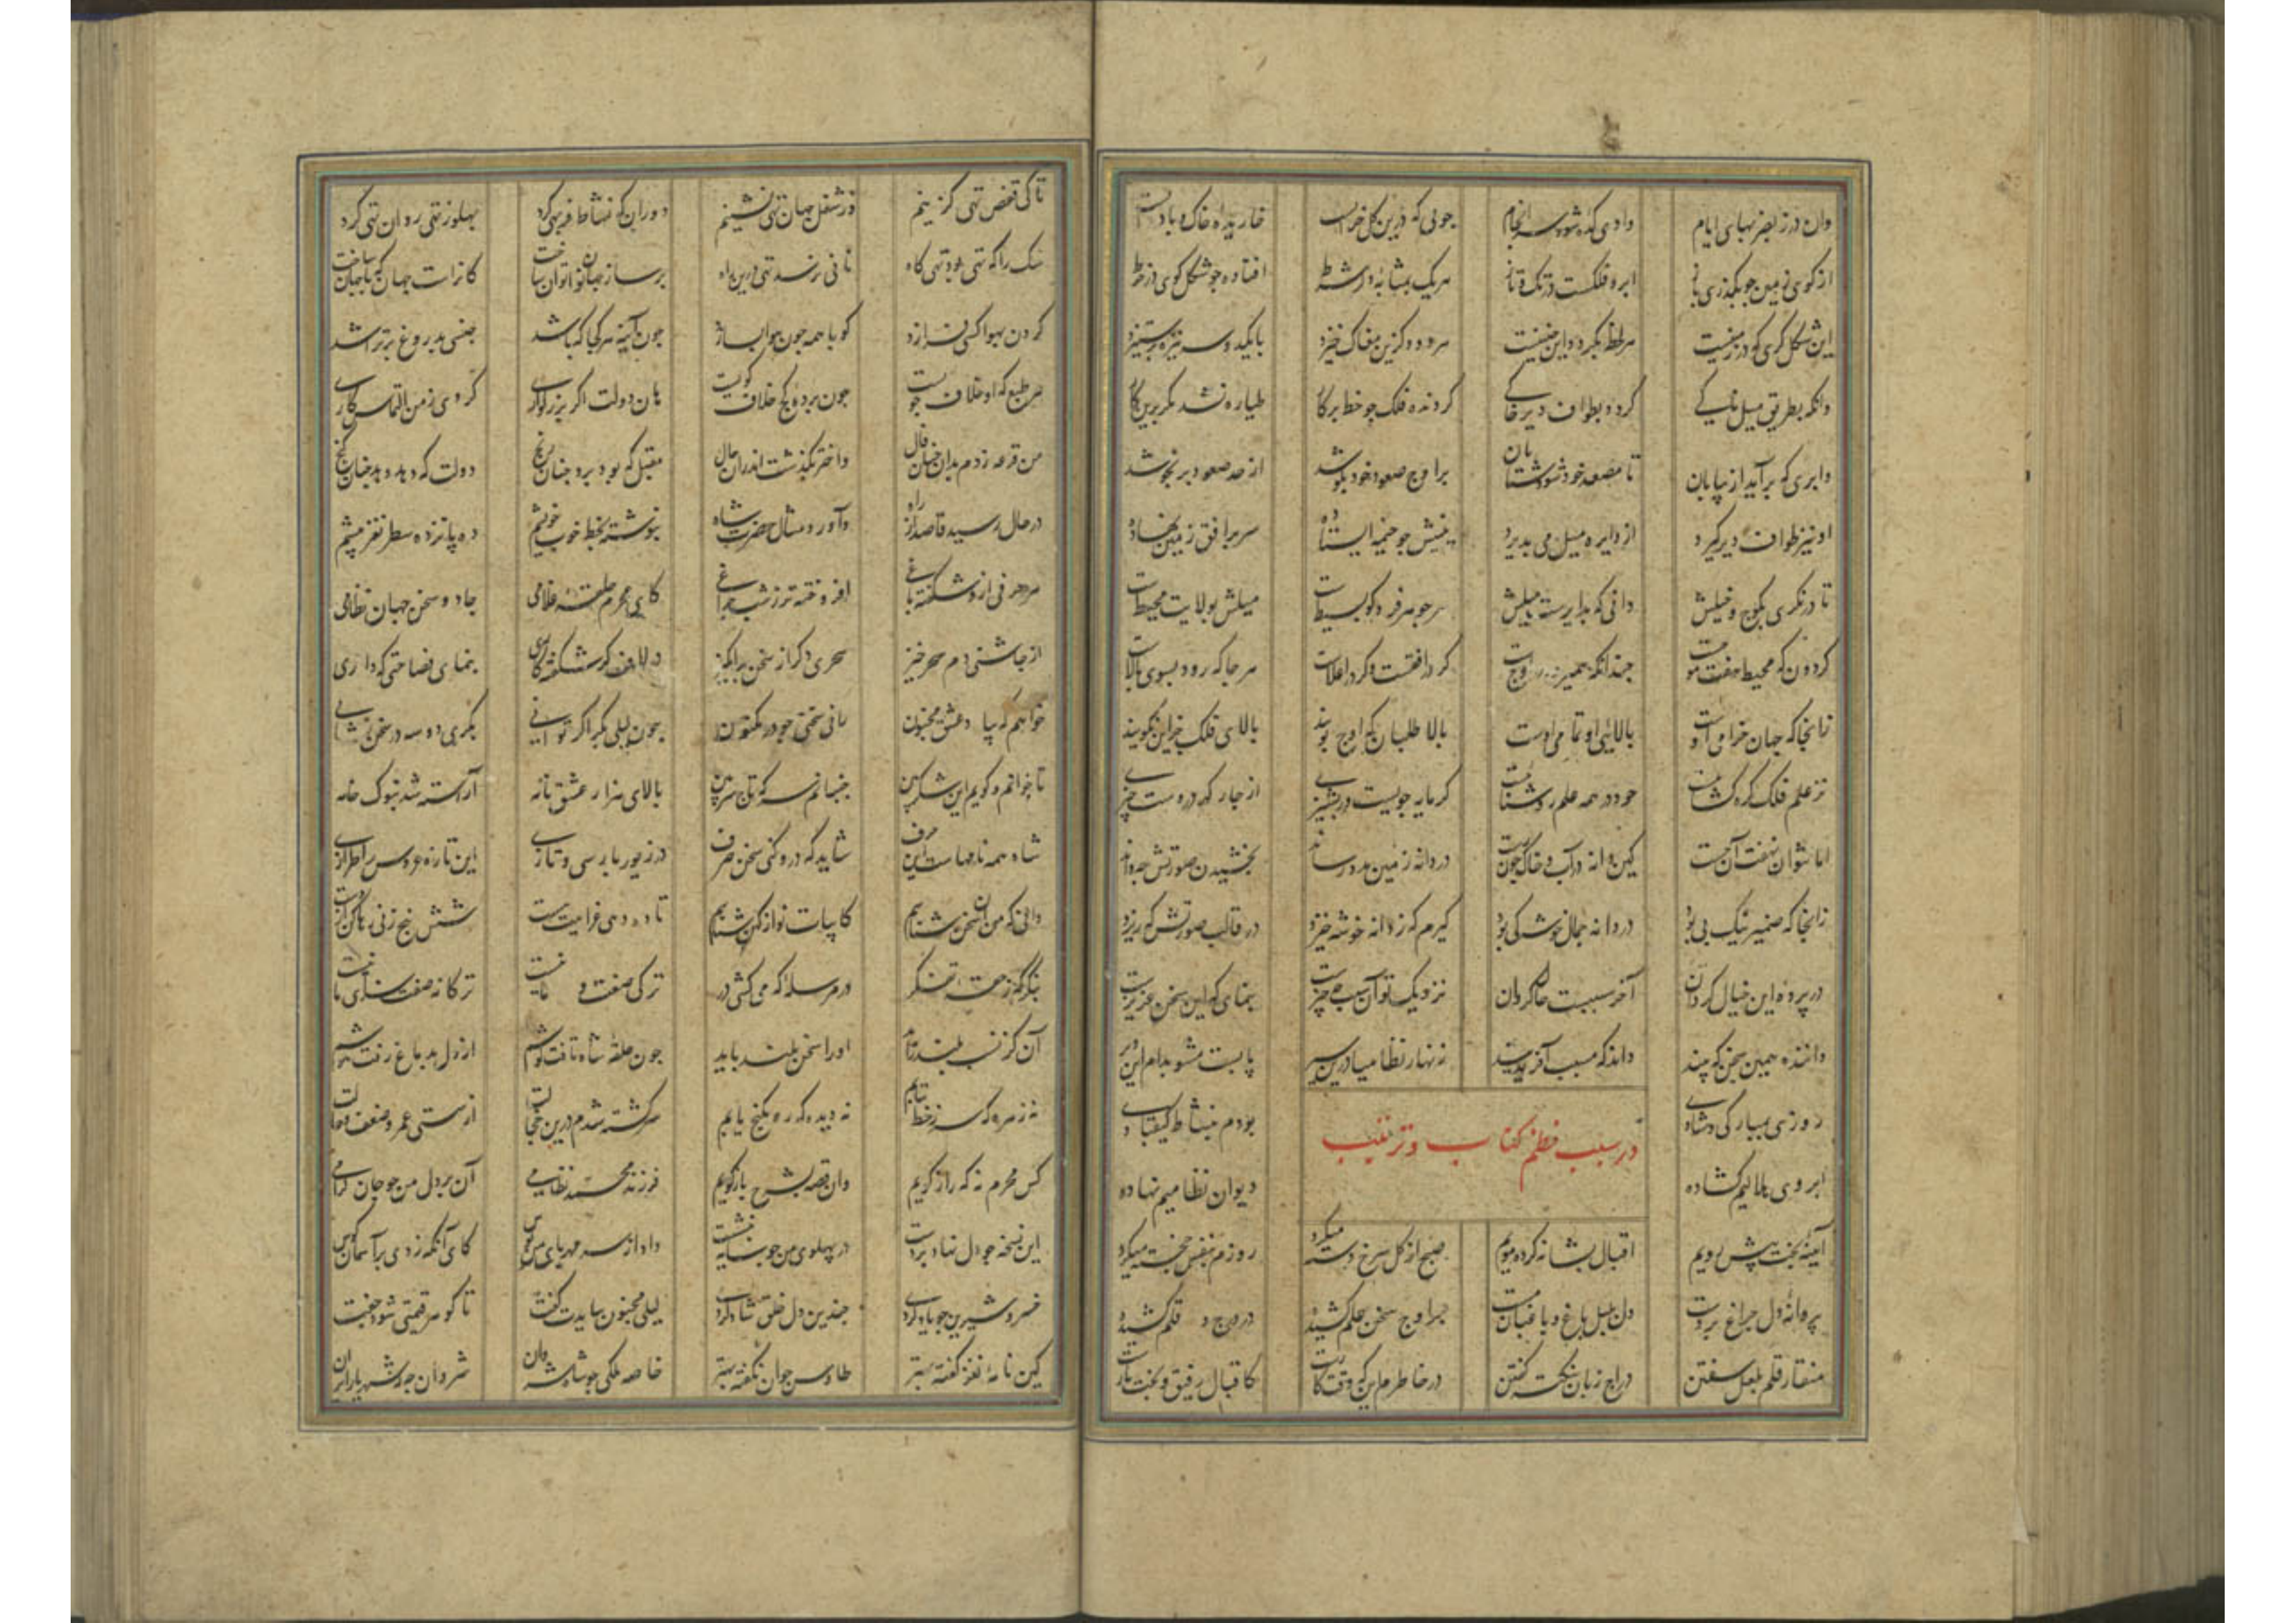 وان در ز بصرنهای ایام وادی کده شود سرانجام جویی که درین گل خرابست خاریده خاک و باد و آبست
از کوی زمین چو بگذری باز ابر و فلکست در تک و تاز هریک بمثابه در خط افتاده چو شکل کوی در خط
این شکل کری که در زمینست هر خط که بکرد و این چنینست هر دود کزین مغاک خیزد تا یکدو سه نیزه برستیزد
وانکه بطریق میل ناکی گردد بطواف دیر خاکی گردنده فلک چو خط پرگار طیاره نشد مگر برین کار
وابری که برآید از بیابان تا مصعد خود شود شتابان بر اوج صعود خود بکوشد از حد صعود بر نجوشد
او نیز طواف دیر گیرد از دایره میل می پذیرد بینیش چو خیمه ایستاده سر بر افق زمین نهاده
تا درنگری بکوچ و خیلش دانی که بدایره ست میلش هر جوهر فرد کو بسیطست میلش بولایت محیطست
گردون که محیط هفت موجست چندانکه همی رود در اوجست گر در افقست و گر در اعلاست هر جا که رود بسوی بالاست
زانجا که جهان خرامی اوست بالائی او تمامی اوست بالا طلبان که اوج جویند بالای فلک جز این نگویند
نز علم فلک گره گشائیست خود در همه علم روشنائیست گر مایه جویست ور پشیزی از چار گهر دروست چیزی
اما نتوان نهفت آن جست کین دانه در آب و خاک چون رست در دانه زمین مدد رساند بخشیدن صورتش چه داند
زانجا که ضمیر نیک بی بود در دانه جمال خوشه کی بود گیرم که ز دانه خوشه خیزد در قالب صورتش که ریزد
در پرده این خیال گردان آخر سببیست حال گردان نزدیک تو آن سبب چه چیزست بنمای که این سخن عزیزست
داننده همین سخن که چند داند که مسبب آفریند زنهار نظامیا درین سیر پابست مشو بدام این دیر
روزی بمبارکی و شادی بودم بنشاط کیقبادی
در سبب نظم کتاب و ترغیب
ابروی هلالیم گشاده دیوان نظامیم نهاده
آیینه بخت پیش رویم اقبال بشانه کرده مویم صبح از گل سرخ دسته میکرد روزم بنفس خجسته میکرد
پروانه دل چراغ بر دست دل بلبل باغ و باغبان مست بر اوج سخن علم کشیده در درج قلم کشیده
منقار قلم بلعل سفتن دراج زبان بنکته گفتن در خاطرم این که وقت کارست کاقبال رفیق و بخت یارست
تا کی قفص تهی گزینم در شغل جهان تهی نشینم دوران که نشاط فربهی کرد پهلو ز تهی روان تهی کرد
سگ را که تهی بود تهی گاه نانی نرسد تهی درین راه بر ساز جهان نوا توان ساخت کانراست جهان که با جهان ساخت
گردن بهوا کسی فرازد کو با همه چون هوا بسازد چون آینه هر کجا که باشد جنسی بدروغ بر تراشد
هر طبع که او خلاف جویست چون پرده کج خلاف گویست هان دولت اگر بزرگواری کردی ز من التماس کاری
من قرعه زدم بدان چنان فال واختر بگذشت اندران حال مقبل که بود برد چنان رنج دولت که دهد دهد چنان گنج
در حال رسید قاصد از راه و آورد مثال حضرت شاه بنوشته بخط خوب خویشم ده پانزده سطر نغز بیشم
هر حرفی ازو شکفته باغی افروخته تر ز شب چراغی کای محرم حلقه غلامی جادو سخن جهان نظامی
از چاشنی دم سحر خیز سحری دگر از سخن برانگیز در لافگه شگفت کاری بنمای فصاحتی که داری
خواهم که بیاد عشق مجنون رانی سخنی چو در مکنون چون لیلی بکر اگر توانی بکری دو سه در سخن نشانی
تا خوانم و گویم این شکر بین جنبانم سر که تاج سر بین بالای هزار عشق نامه آراسته شد بنوک خامه
شاه همه نامهاست این حرف شاید که درو کنی سخن صرف در زیور پارسی و تازی این تازه عروس را طرازی
دانی که من آن سخن شناسم کابیات نو از کهن شناسم تا ده دهی غرایبت هست ده پنج زنی رها کن از دست
بنگر که ز حقه تفکر در مرسله که می کشی در ترکی صفت وفای ما نیست ترکانه صفت سزای ما نیست
آن کز نسب بلند زاید او را سخن بلند باید چون حلقه شاه یافت گوشم از دل بدماغ رفت هوشم
نه زهره که سر ز خط بتابم نه دیده که ره بگنج یابم سرگشته شدم درین خجالت از سستی عمر و ضعف حالت
کس محرم نه که راز گویم وان قصه بشرح باز گویم فرزند محمد نظامی آن بر دل من چو جان گرامی
این نسخه چو دل نهاد بر دست در پهلوی من چو سایه بنشست داد از سر مهر پای من بوس کای آنکه زدی بر آسمان کوس
خسرو شیرین چو یاد کردی چندین دل خلق شاد کردی لیلی مجنون ببایدت گفت تا گوهر قیمتی شود جفت
کین نامه نغز گفته بهتر طاوس جوان نگفته بهتر خاصه ملکی چو شاه شروان شروان چه که شهریار ایران